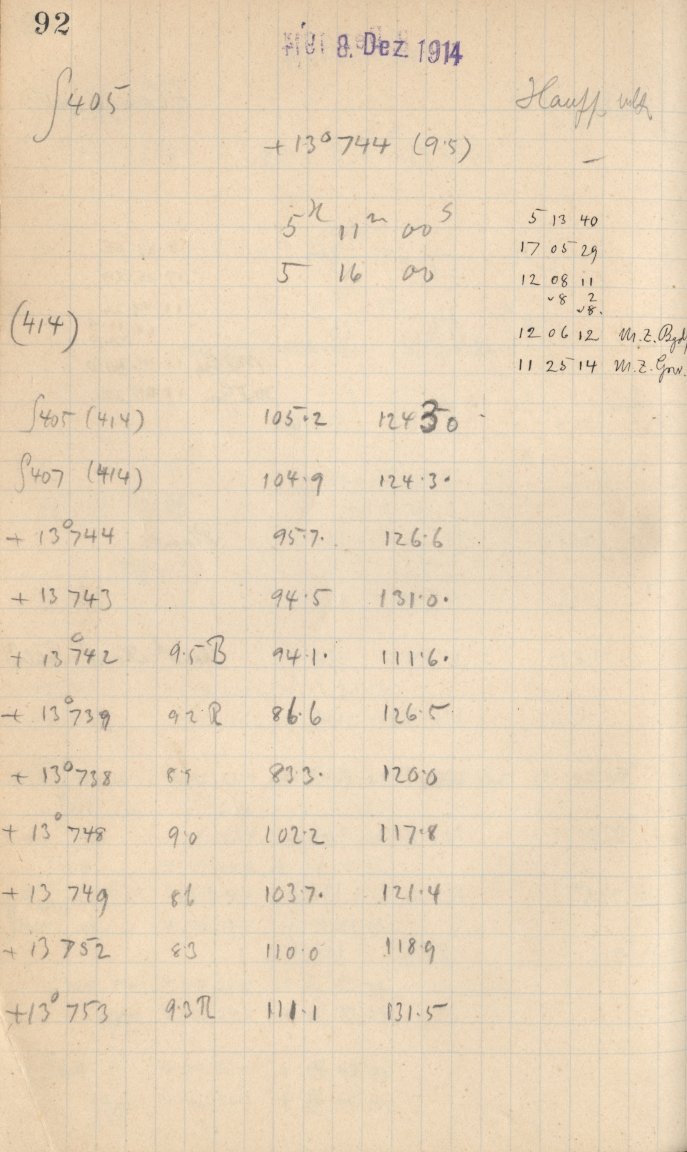 92
8. Dez. 1914
∫405
Hauff
+ 13° 744 (9.5)
–
5h 11m 00s
5 16 00
5 13 40
17 05 29
12 08 11
8 2
8.
12 06 12 M.Z. Bgdf
11 25 14 M.Z. Grw.
(414)
∫405 (414) 105.2 124 30
∫407 (414) 104.9 124.3.
+ 13°744 95.7. 126.6
+ 13 743 94.5 131.0.
+ 13°742 9.5 B 94.1. 111.6.
+ 13°739 9.2 R 86.6 126.5
+ 13°738 83.3. 120.0
+ 13° 748 9.0 102.2 117.8
+ 13 749 8.6 103.7. 121.4
+ 13 752 8.3 110.0 118.9
+13° 753 9.3 R 111.1 131.5